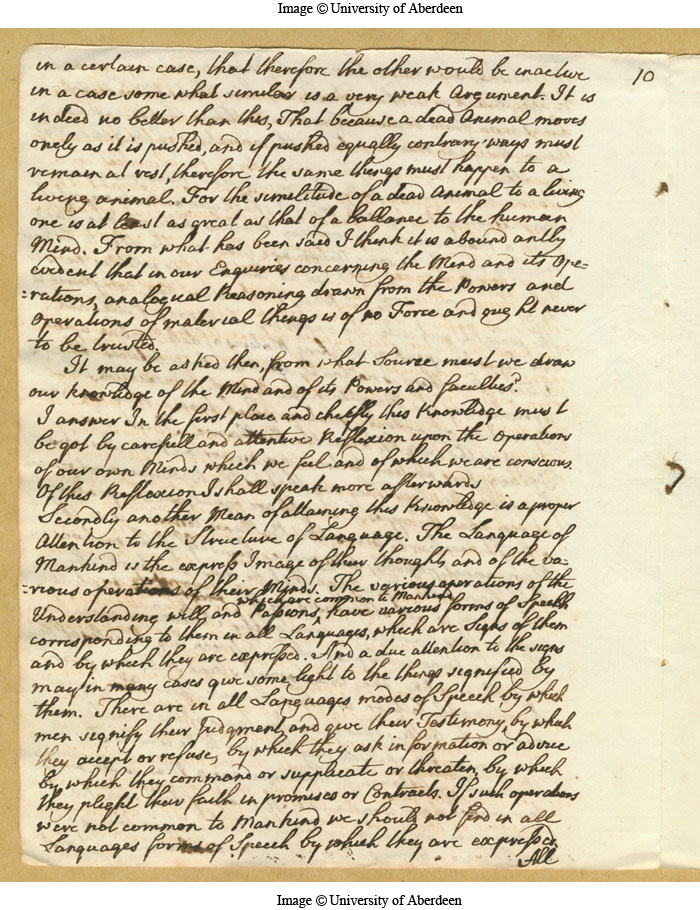 Image © University of Aberdeen
10
in a certain case, that therefore the other would be inactive
in a case some what similar is a very weak Argument. It is
indeed no better than this, That because a dead Animal moves
onely as it is pushed, and if pushed equally contrary ways must
remain at rest, therefore the same things must happen to a
living animal. For the similitude of a dead Animal to a living
one is at least as great as that of a ballance to the human
Mind. From what has been said I think it is abound antly
evident that in our Enquiries concerning the Mind and its Ope-
=rations, analogical Reasoning drawn from the Powers and
Operations of material things is of no Force and ought never
to be trusted.
It may be asked then, from what Source must we draw
our knowledge of the Mind and of its Powers and faculties?
I answer In the first place and cheifly this Knowledge must
be got by carefull and attentive Reflexion upon the Operations
of our own Minds which we feel and of which we are conscious.
Of this Reflexion I shall speak more afterwards
Secondly another Mean of attaining this Knowledge is a proper
Attention to the Structure of Language. The Language of
Mankind is the express Image of their thoughts and of the va-
=rious operations of their Minds. The various operations of the
which are common to Mankind
Understanding will and Passions, have various forms of Speech
corresponding to them in all Languages, which are Signs of them
and by which they are expressed. And a due attention to the signs
may in many cases give some light to the things signified by
them. There are in all Languages modes of Speech by which
men signify their Judgment, and give their Testimony, by which
they accept or refuse, by which they ask information or advice
by which they command or supplicate or threaten, by which
they plight their faith in promises or Contracts. If such operations
were not common to Mankind we should not find in all
Languages forms of Speech by which they are expressed.
All
Image © University of Aberdeen